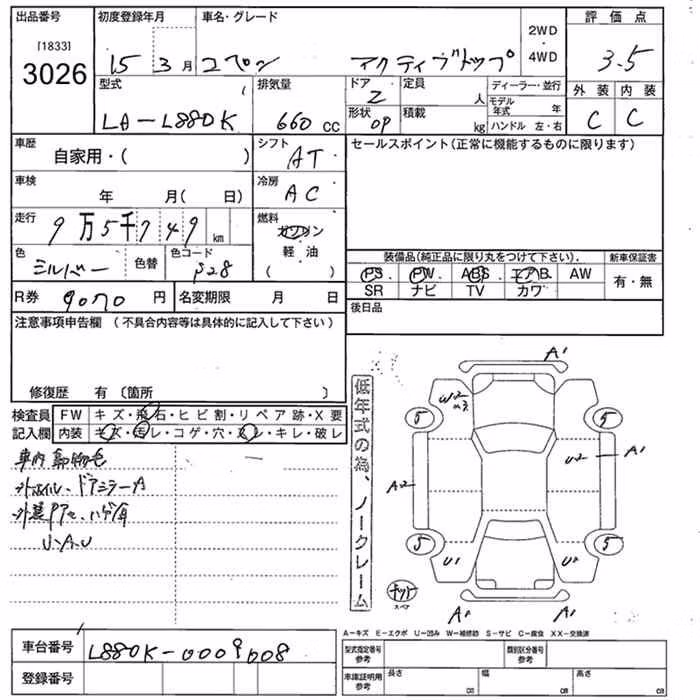 出品番号 初度登録年月 車名・グレード 評価点
[1833]
3026
15 3月 コペン アクティブトップ 2WD・4WD 3.5
型式 排気量 ドア 定員 ディーラー・並行 外装 内装
LA-L880K 660cc 2 人 モデル年式 年 C C
形状 積載 ハンドル 左・右
OP kg
車歴 シフト セールスポイント(正常に機能するものに限ります)
自家用・( ) AT
車検 冷房
年 月( 日) AC
走行 燃料
9万5千749km ガソリン
軽油
( )
色 色替 色コード
シルバー
装備品(純正品に限り丸をつけて下さい). 新車保証書
PS PW ABS エアB AW 有・無
SR ナビ TV カワ
R券 9070円 名変期限 月 日 後日品
注意事項申告欄 (不具合内容等は具体的に記入して下さい)
修復歴 有 〔箇所 〕
検査員 FW キズ・飛石・ヒビ割・リペア跡・X要
記入欄 内装 キズ・汚レ・コゲ・穴・スレ・キレ・破レ
ドアミラーA
U・A・U
低年式の為、ノークレーム
A1
W2
5 5
A2 U2 A1
5 5
U1 U2
スペア
A2 A1
A-キズ E-エクボ U-凹み W-補修跡 S-サビ C-腐食 XX-交換済
車台番号 L880K-0009008 型式指定番号 参考 類別区分番号 参考
登録番号 車庫証明用 参考 長さ cm 幅 cm 高さ cm